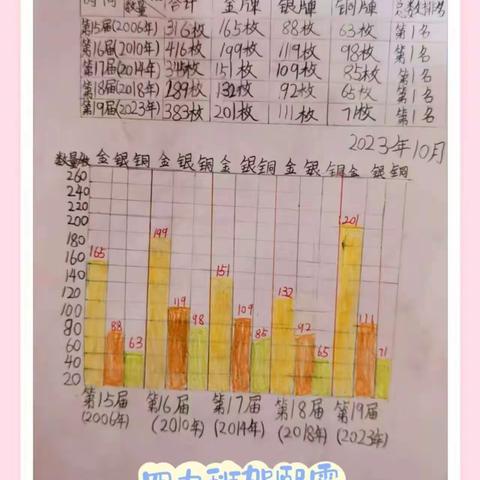 数量 合计 金牌 银牌 铜牌
第15届(2006年) 316枚 165枚 88枚 63枚 第1名
第16届(2010年) 416枚 199枚 119枚 98枚 第1名
第17届(2014年) 345枚 151枚 109枚 85枚 第1名
第18届(2018年) 289枚 132枚 92枚 65枚 第1名
第19届(2023年) 383枚 201枚 111枚 71枚 第1名
2023年10月
数量/枚 金 银 铜 金 银 铜 金 银 铜 金 银 铜 金 银 铜
260
240
220
200
180
160
140
120
100
80
60
40
20
165 88 63 199 119 98 151 109 85 132 92 65 201 111 71
第15届 第16届 第17届 第18届 第19届
(2006年) (2010年) (2014年) (2018年) (2023年)